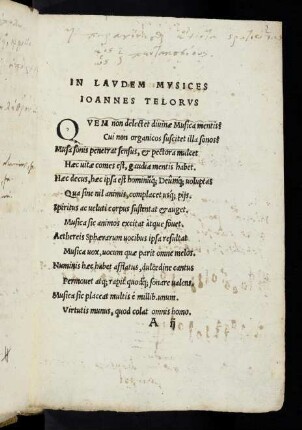 IN LAVDEM MVSICES
IOANNES TELORVS
QVEM non delectet diuinæ Musica mentis?
Cui non organicos suscitet illa sonos?
Musa sonis penetrat sensus, & pectora mulcet
Hæc uitæ comes est, gaudia mentis habet.
Hæc decus, hæc ipsa est hominūq; Deūmq; uoluptas
Qua sine nil animis, complacet usq; pijs.
Spiritus ac ueluti corpus sustentat & auget.
Musica sic animos excitat atque fouet.
Aethereis Sphærarum uocibus ipsa resultat
Musica uox, uocem quæ parit omne melos.
Numinis hæc habet afflatus, dulcedine cantus
Permouet atq; rapit quodq; sonare ualens.
Musica sic placeat multis è millib. unum.
Virtutis munus, quod colat omnis homo.
A ij